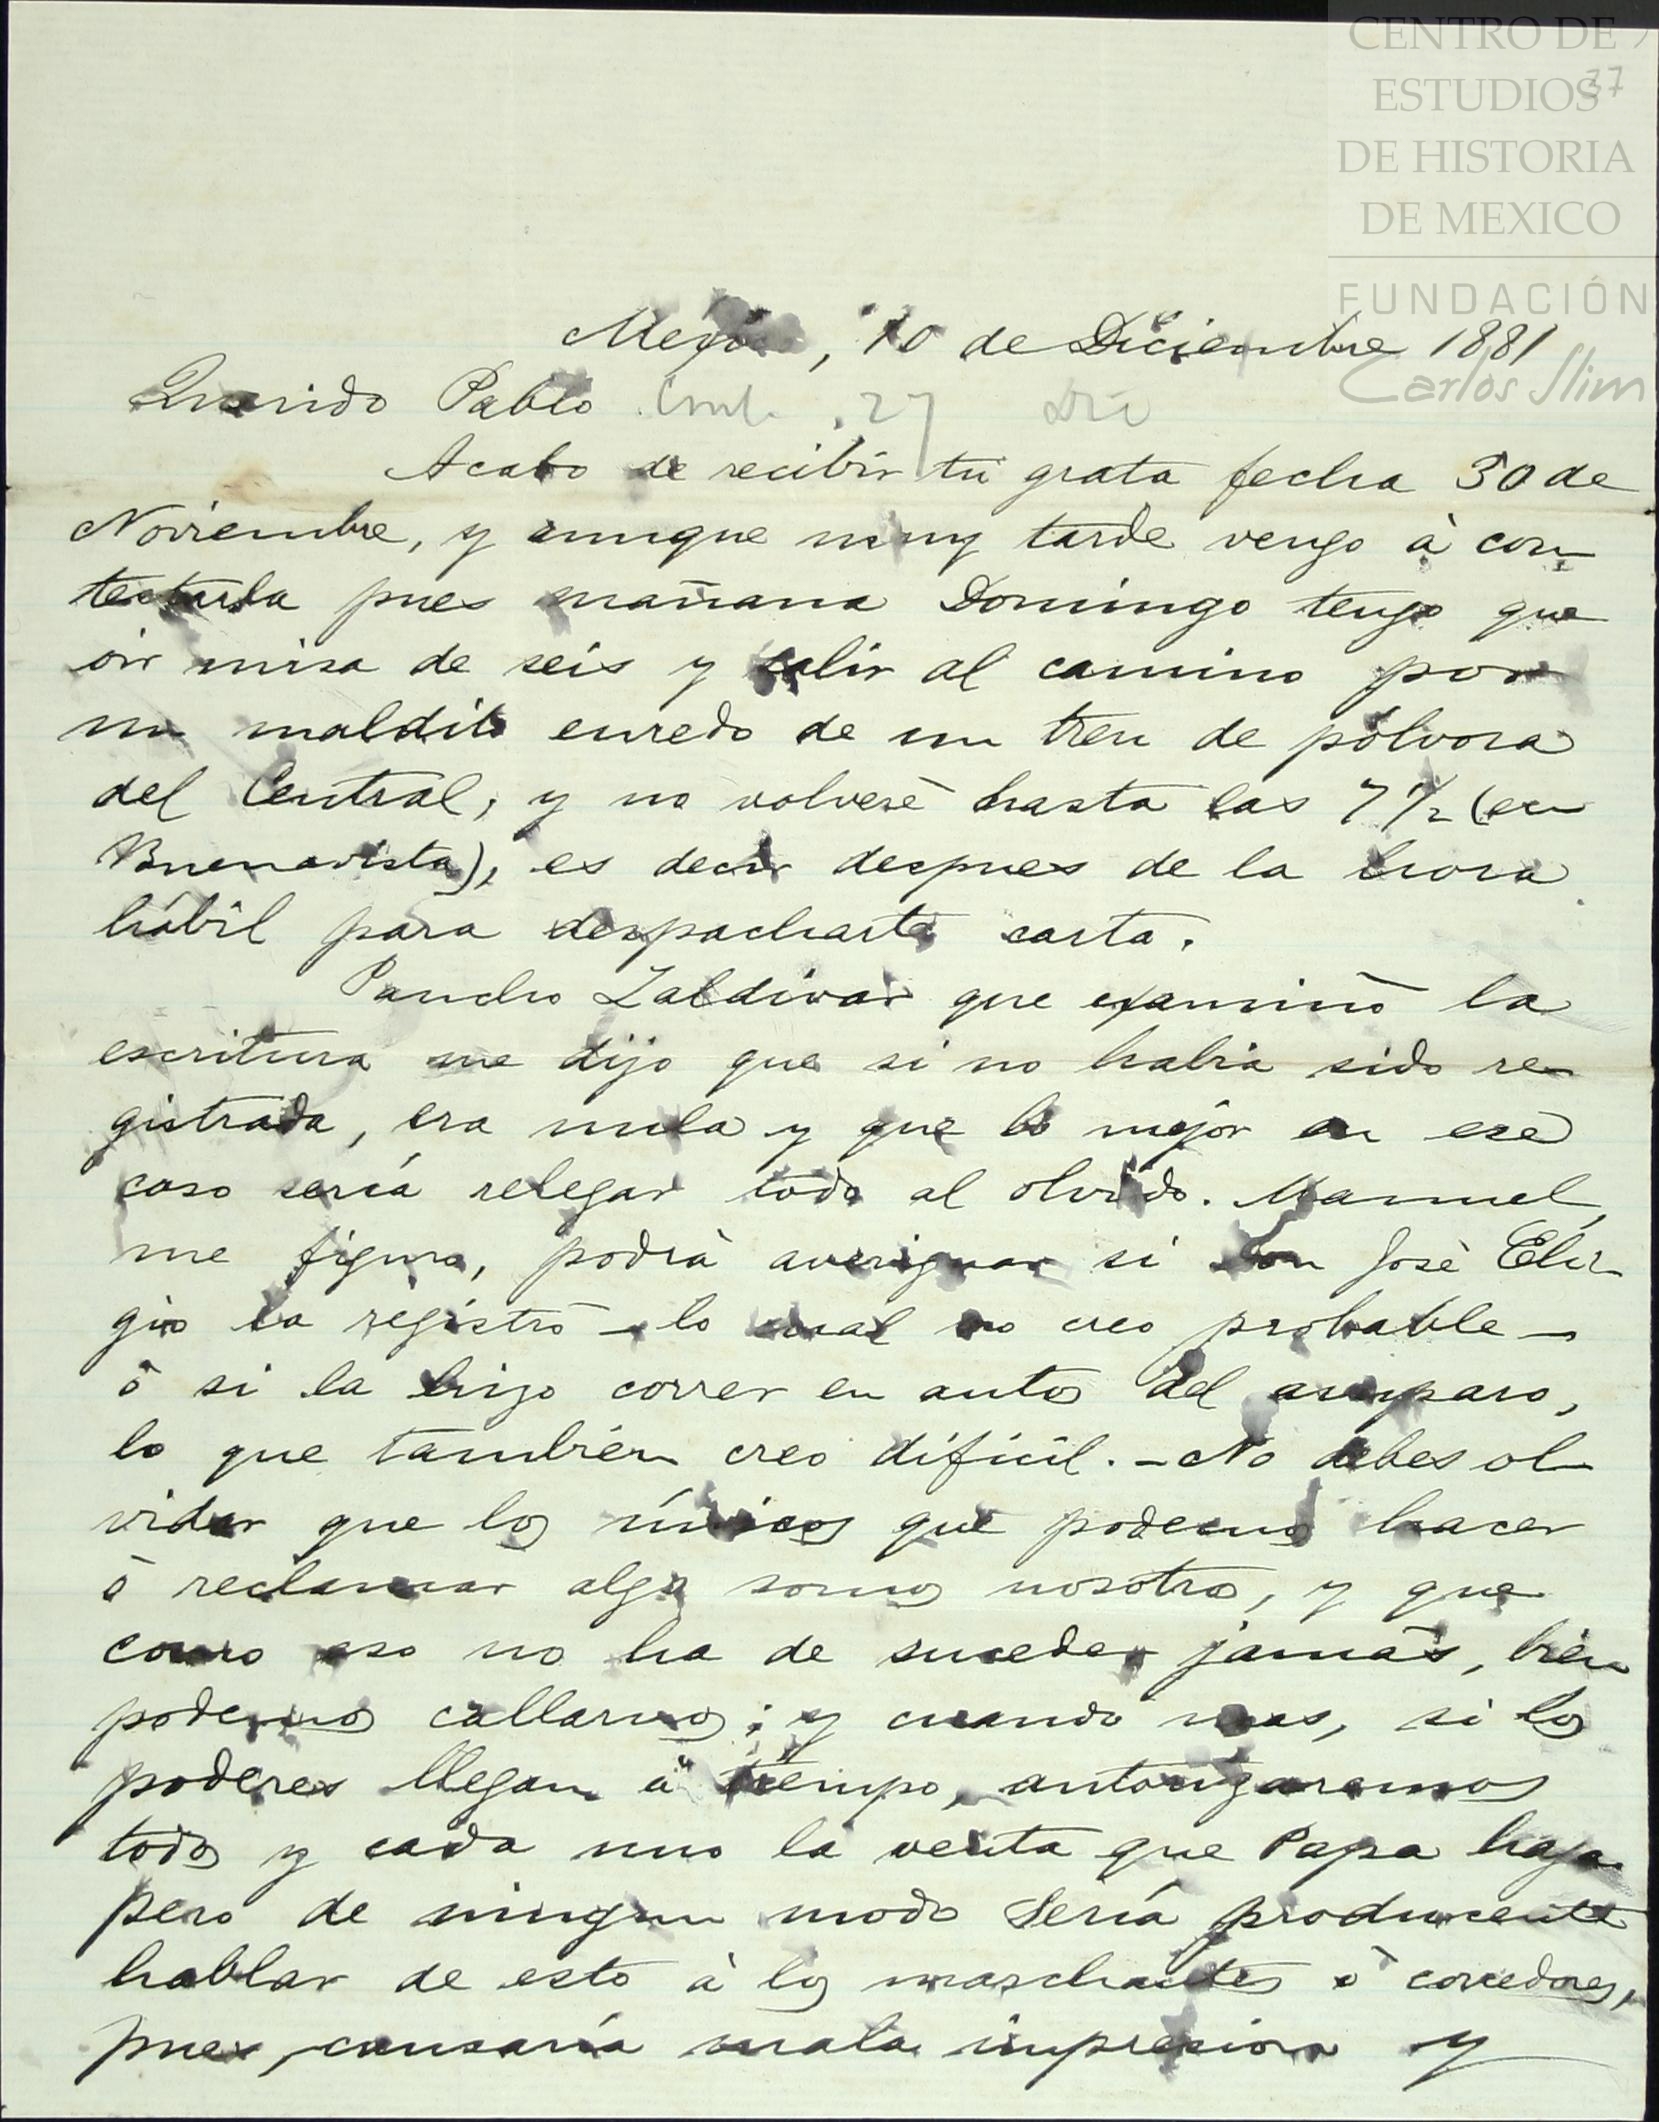 CENTRO DE
ESTUDIOS
37
DE HISTORIA
DE MEXICO
FUNDACIÓN
Carlos Slim
Mexico, 10 de Diciembre 1881
Querido Pablo 27
Acabo de recibir tu grata fecha 30 de
Noviembre, y aunque muy tarde vengo à con
testarla pues mañana Domingo tengo que
oir misa de seis y salir al camino por
un maldito enredo de un tren de pólvora
del Central, y no volveré hasta las 7 1/2 (en
Buenavista), es decir despues de la hora
hábil para despacharte carta.
Pancho Zaldivar que examinó la
escritura me dijo que si no habia sido re
gistrada, era nula y que lo mejor en ese
caso sería relegar todo al olvido. Manuel,
me figuro, podrà averiguar si Don José Elir
gio la registró - lo cual no creo probable -
ò si la hizo correr en autos del amparo,
lo que tambien creo dificil. - No debes ol
vidar que los únicos que podemos hacer
ò reclamar algo somos nosotros, y que
como eso no ha de suceder jamás, bien
podemos callarnos; y cuando mas, si los
poderes llegan à tiempo, autorizaremos
todos y cada uno la venta que Papa haga
pero de ningun modo sería producente
hablar de esto à los marchantes ò corredores,
pues, causaría mala impresion y